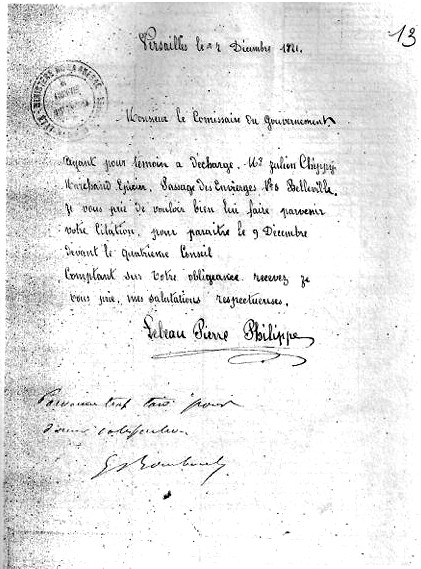 13
Versailles le 7 Décembre 1871.
MINISTERE DE LA GUERRE
Monsieur le Comissaire du Gouvernement
Ayant pour temoin a décharge. Mr Julien
Marchand Epicier, Passage des Envierges No 8 Belleville.
Je vous prie de vouloir bien lui faire parvenir
votre Citation, pour paraitre le 9 Décembre
devant le quatrieme Conseil
Comptant sur votre obligeance recevez je
vous prie, mes salutations respectueuses.
Lebeau Pierre Philippe
Parvenue trop tard pour